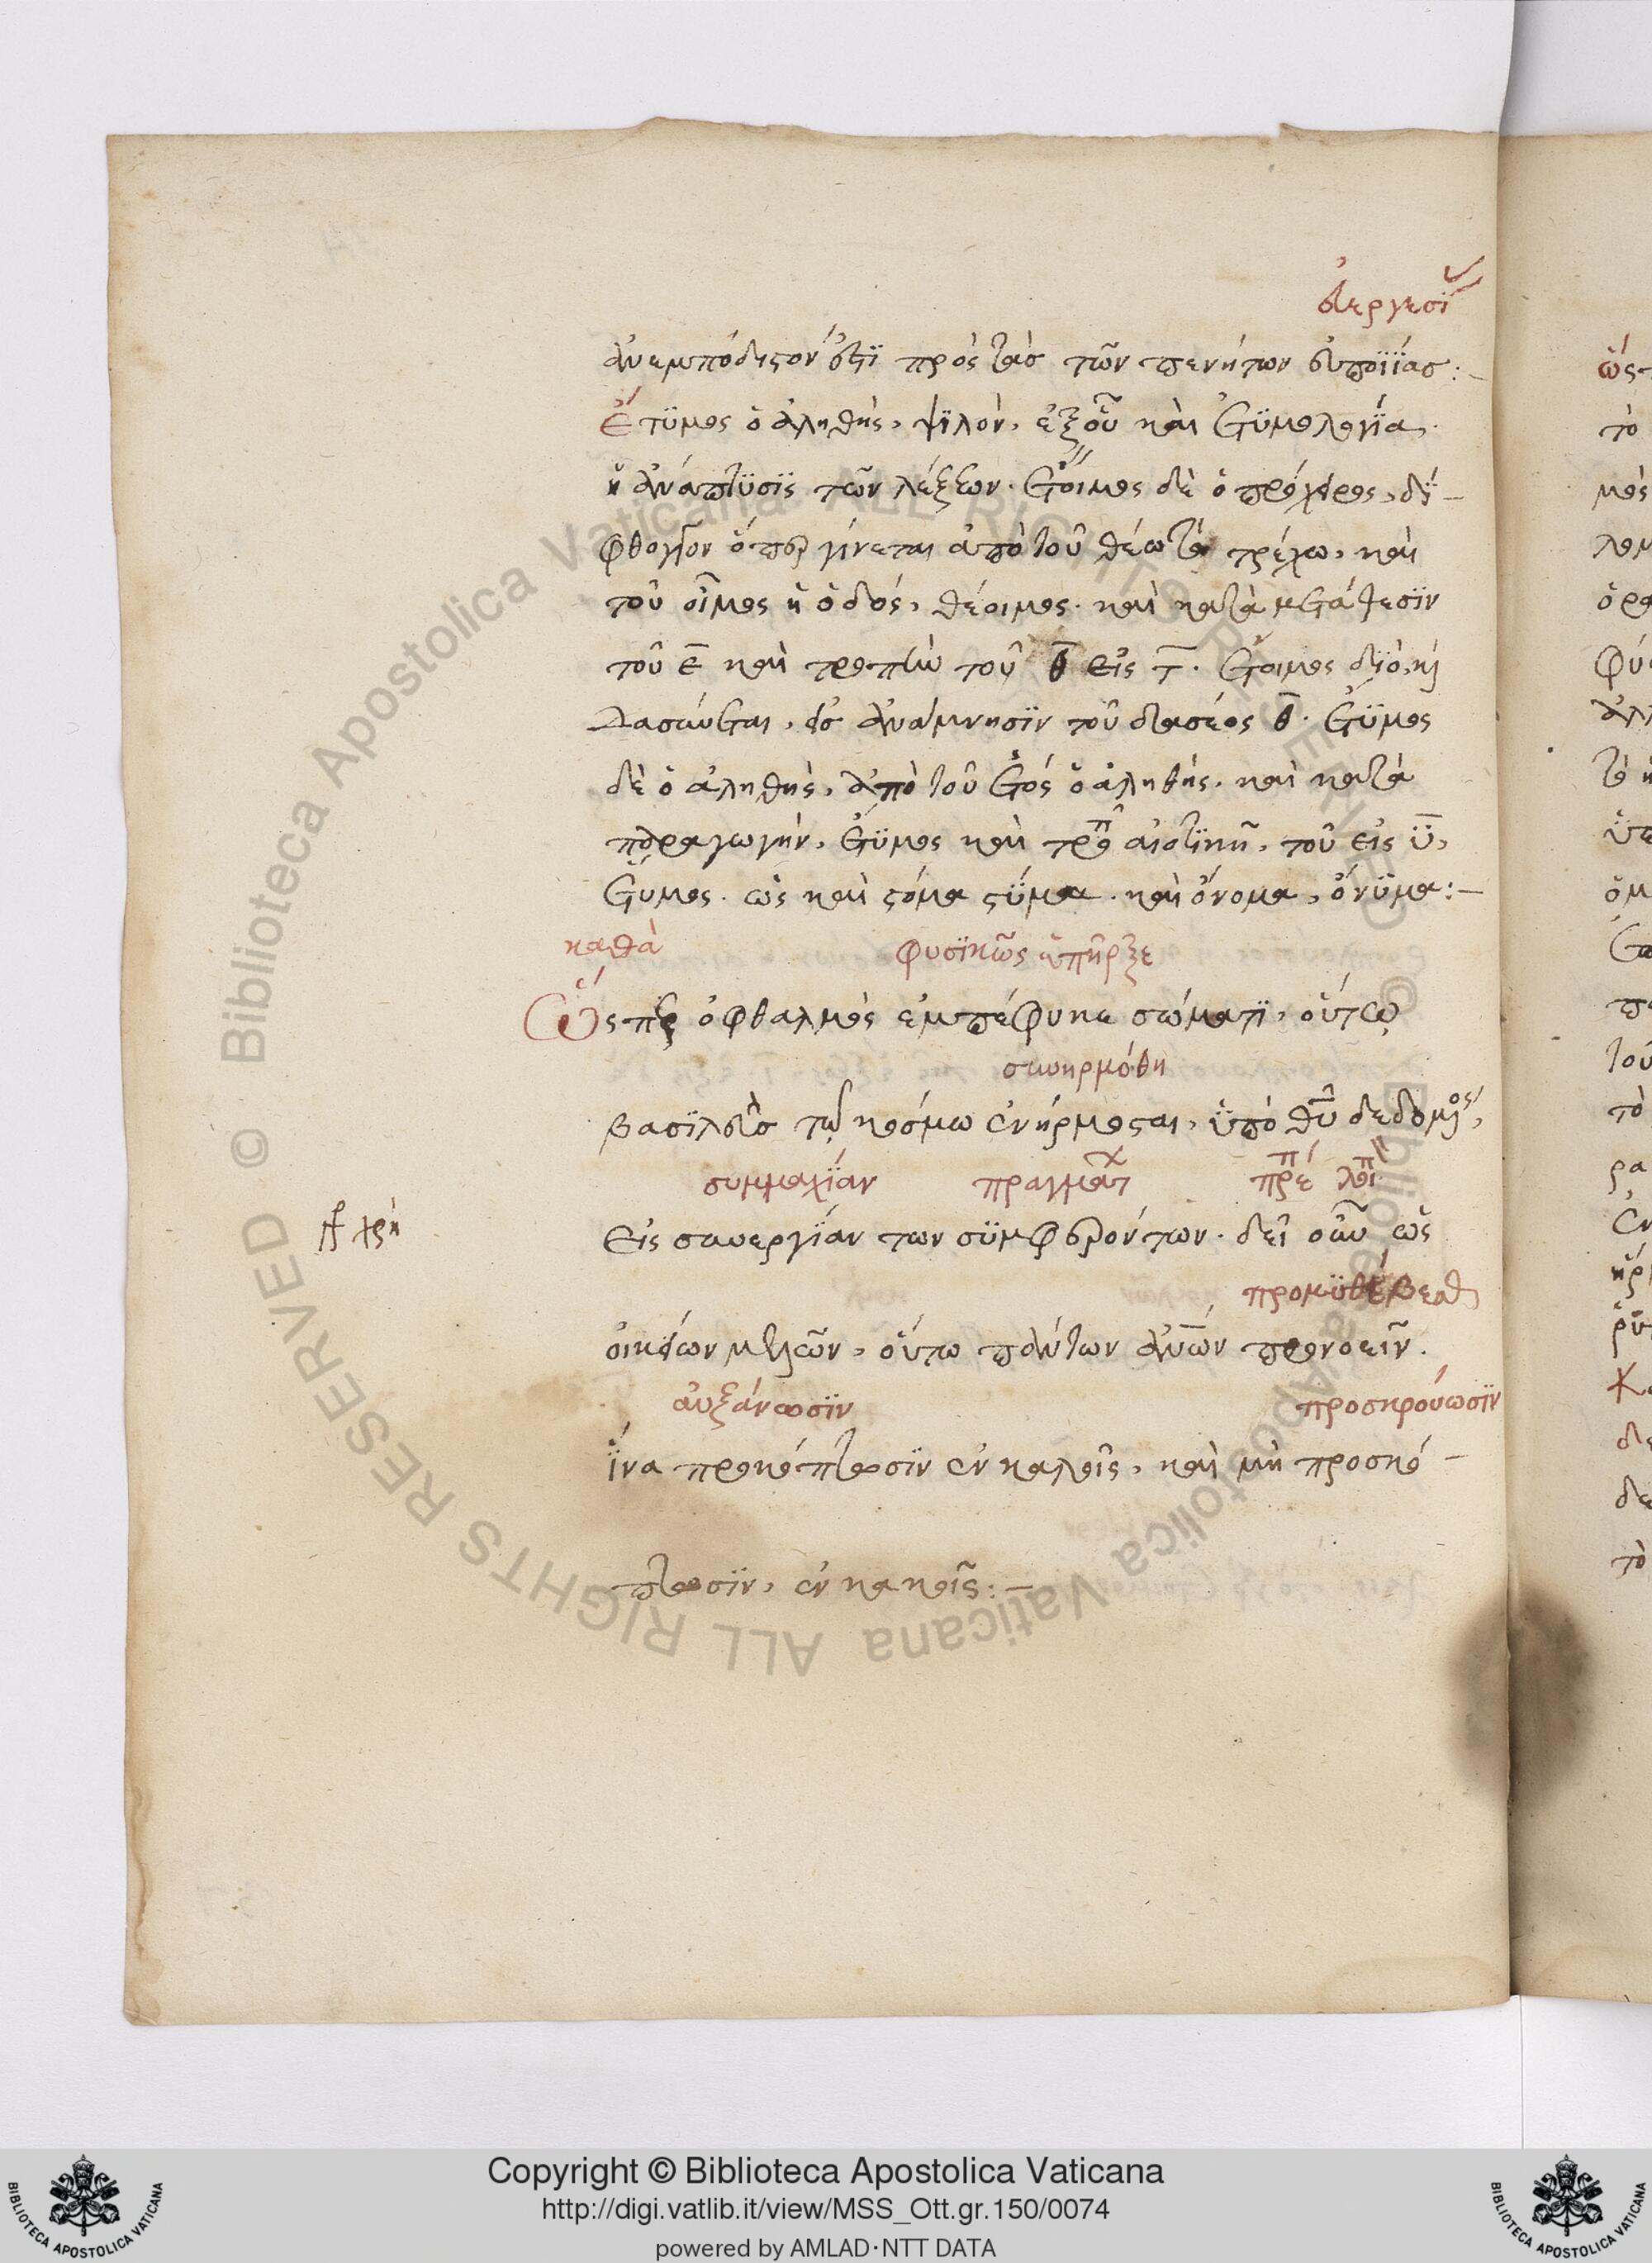 εὐεργεσί
ἀνεμπόδιστον ἐστϊ πρὸς τὰς τῶν πενήτων εὐποιΐας:-
Ἔτϋμος ὁ ἀληθὴς, ψϊλὸν, ἐξοὗ καὶ ἐτϋμολογΐα,
ἡ ἀνάπτϋσϊς τῶν λέξεων· ἕτοιμος δὲ ὁ πρόχειρος, δΐ-
φθογγον ὅπερ γίνεται ἀπὸ τοῦ θέω τὸ τρέχω, καὶ
τοῦ οἶμος ἡ ὁδός, θέοιμος· καὶ κατὰ μετάθεσϊν
τοῦ ε̄ καὶ τροπὴν τοῦ θ̄ εἰς τ̄· ἕτοιμος διὸ καὶ
δασύνεται, εἰς ἀνάμνησϊν τοῦ δασέος θ̄· ἔτϋμος
δὲ ὁ ἀληθὴς, ἀπὸ τοῦ ἐτὸς ὁ ἀληθής· καὶ κατὰ
παραγωγὴν, ἔτϋμος καὶ τροπῆ αἰολϊκῆ, τοῦ εἰς ϋ̄,
ἔτυμος· ὡς καὶ στόμα στΰμα· καὶ ὄνομα, ὄνϋμα:-
καθὰ φυσϊκῶς ὑπῆρξε
Ὥσπερ ὀφθαλμὸς ἐμπέφυκε σώματϊ, οὕτω
συνηρμόθη
βασϊλεὺς τῷ κόσμω ἐνήρμοσται, ὑπὸ θῦ δεδομος,
συμμαχΐαν πραγμάτ πρέπ λοιπ
εἰς συνεργΐαν των συμφερόντων· δεῖ οὖν ὡς
χρὴ
προμϋθέ
οἰκείων μελῶν, οὕτω πάντων ἀν̄ων προνοεῖν.
αὐξάνωσϊν προσκρούωσϊν
ἵνα προκόπτωσϊν ἐν καλοῖς, καὶ μὴ προσκό-
πτωσϊν, ἐν κακοῖς:-
Copyright © Biblioteca Apostolica Vaticana
http://digi.vatlib.it/view/MSS_Ott.gr.150/0074
powered by AMLAD·NTT DATA